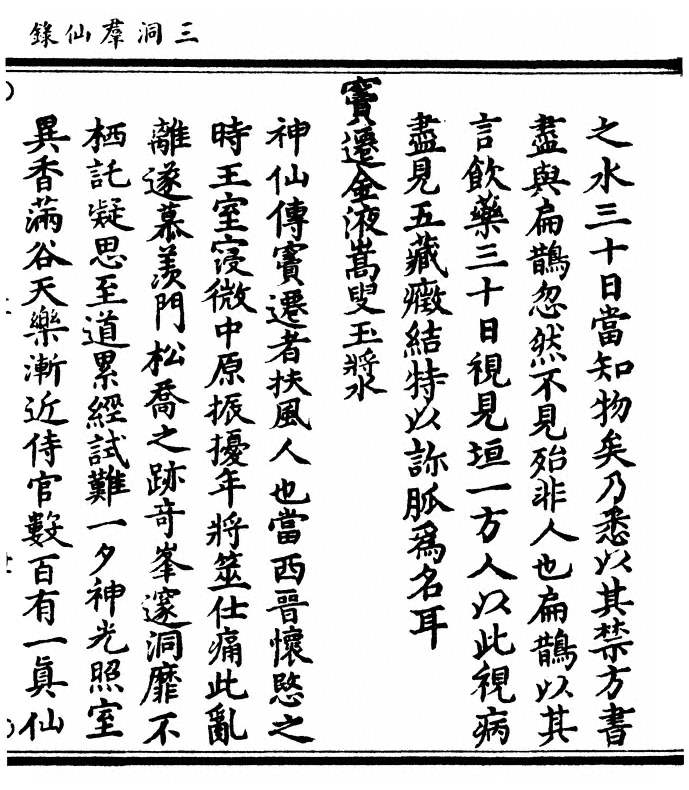 三洞羣仙錄
之水三十日當知物矣乃悉以其禁方書
盡與扁鵲忽然不見殆非人也扁鵲以其
言飲藥三十日視見垣一方人以此視病
盡見五藏癥結特以診脈爲名耳
竇遷金液嵩叟玉漿
神仙傳竇遷者扶風人也當西晉懷愍之
時王室寖微中原振擾年將筮仕痛此亂
離遂慕羨門松喬之跡奇峯邃洞靡不
栖託凝思至道累經試難一夕神光照室
異香滿谷天樂漸近侍官數百有一眞仙